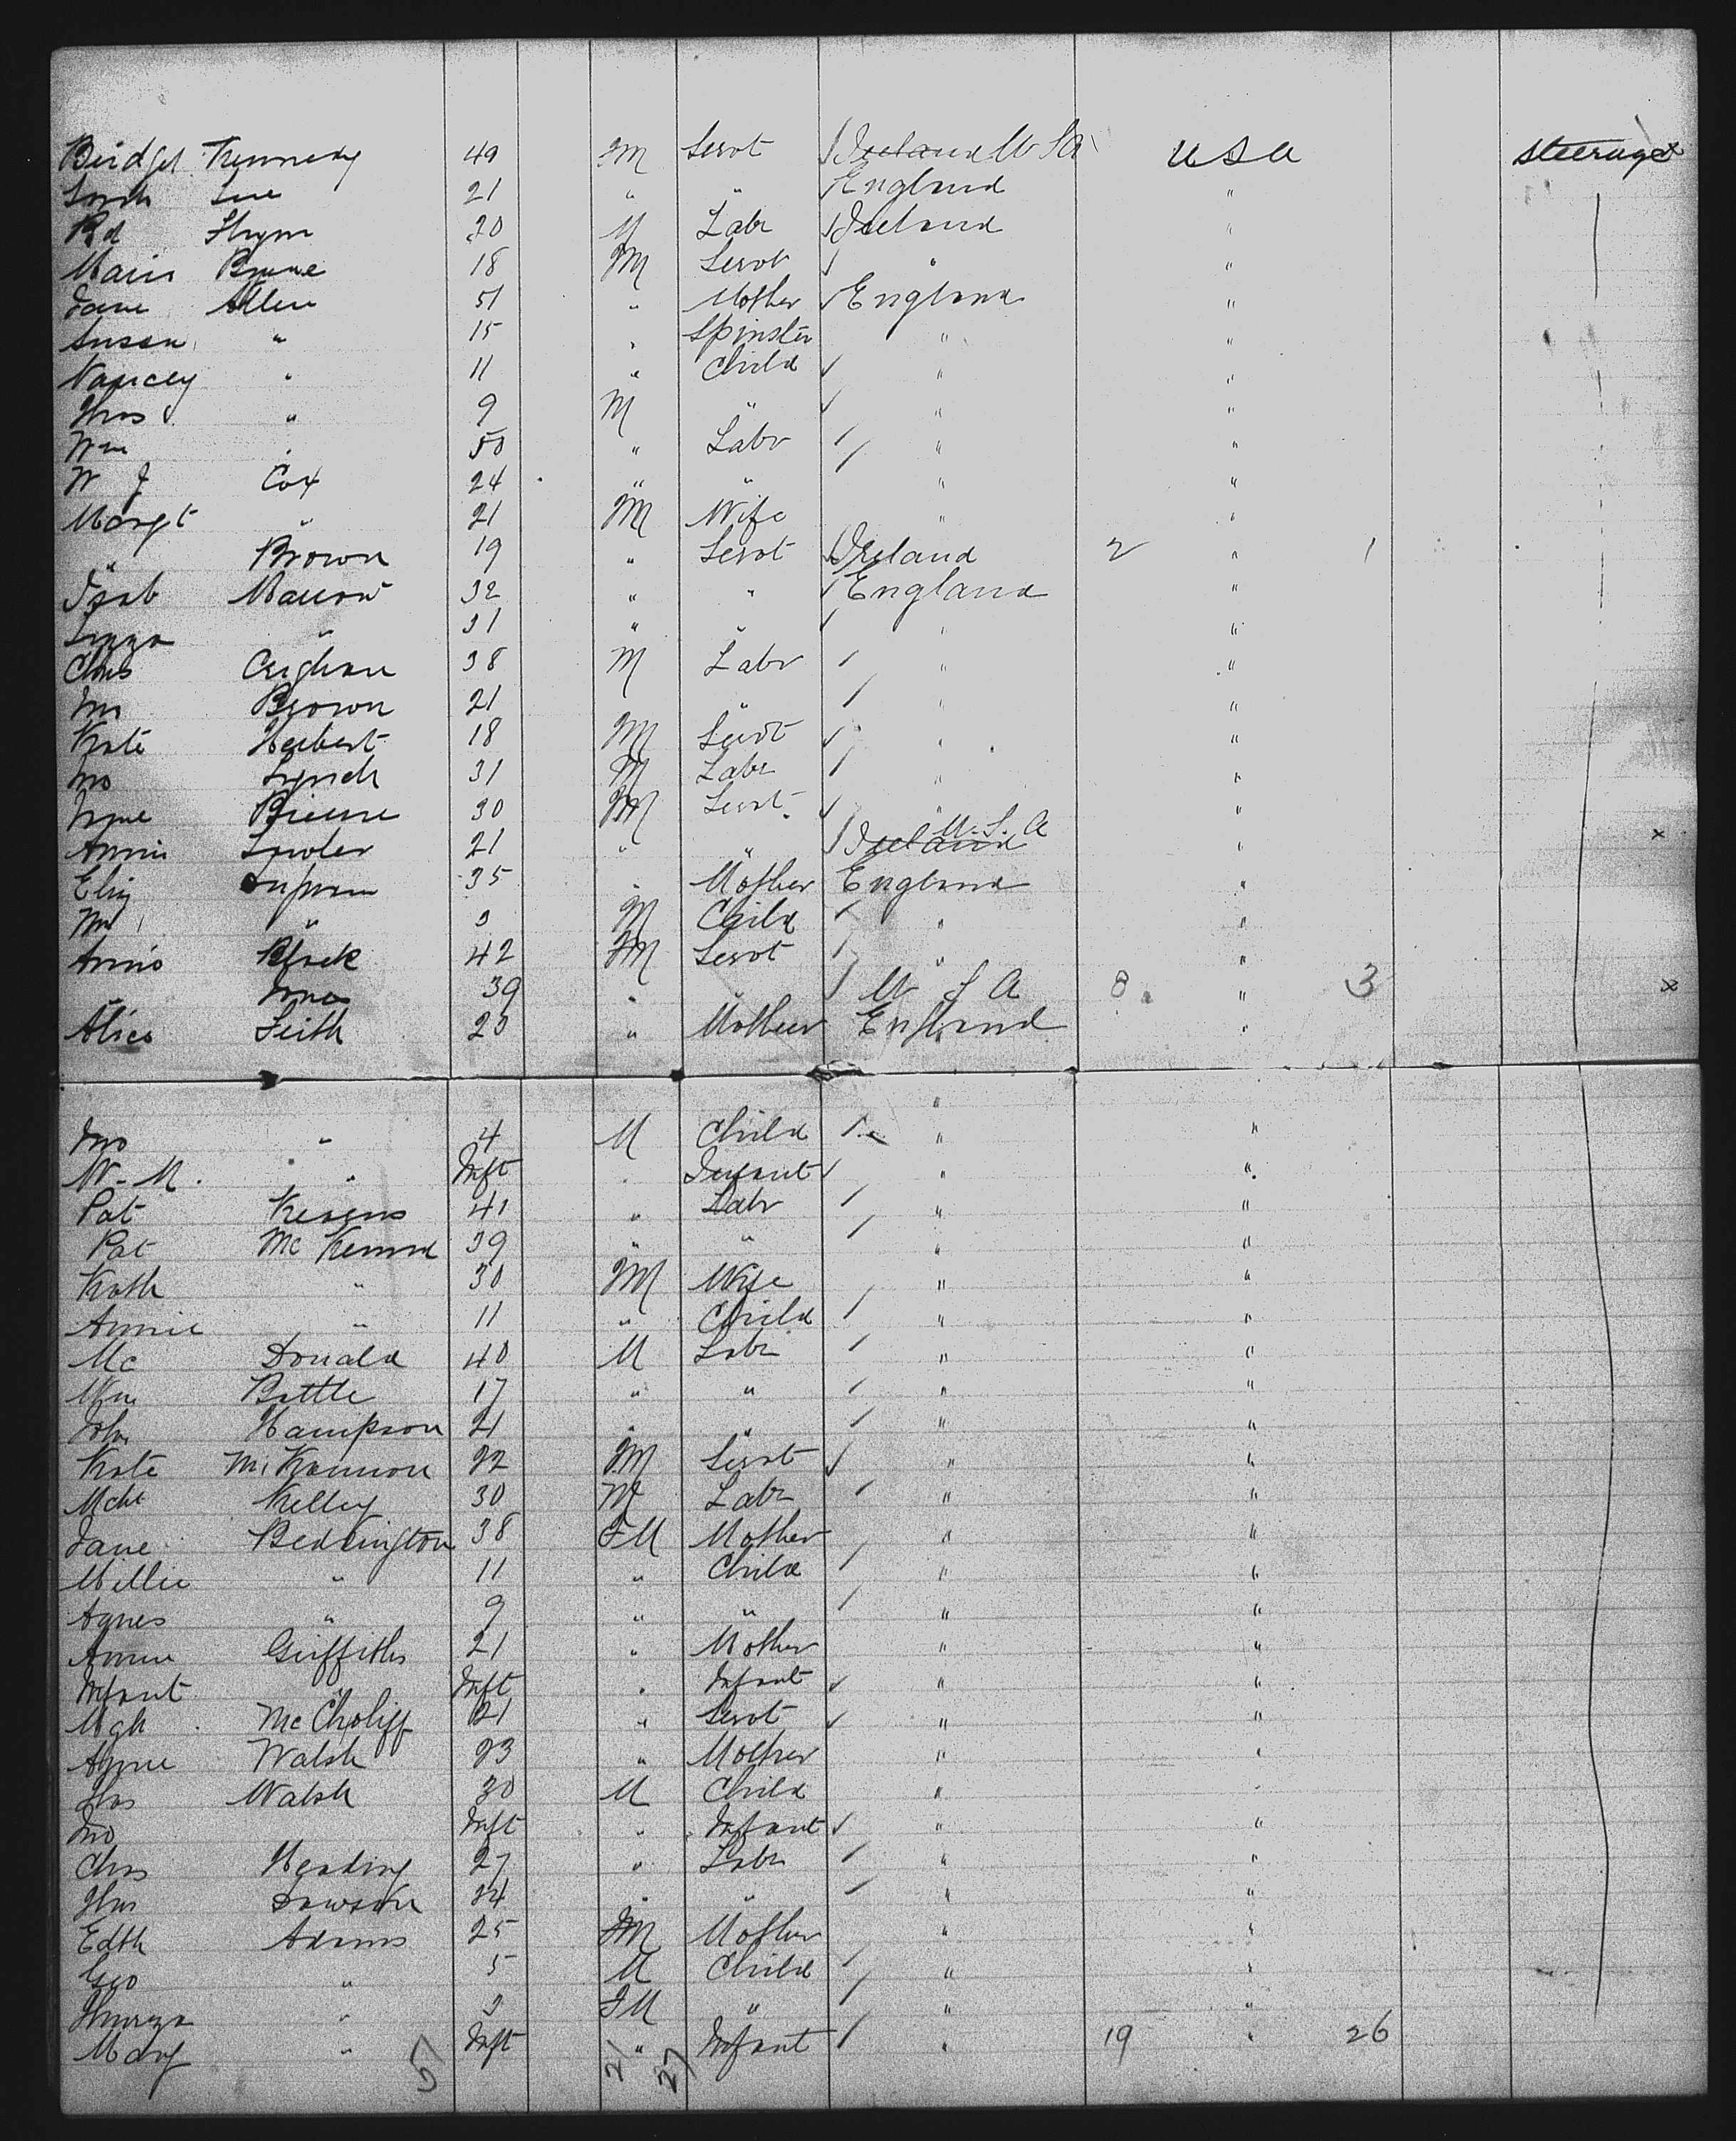 Bridget Kennedy 49 FM Servt Ireland U SA USA Steerage x
21 " " England "
Rd Flynn 20 M Labr Ireland "
Maria 18 FM Servt " "
Jane Allen 51 " Mother England "
Susan " 15 " Spinster " "
Nancey " 11 " Child " "
Thos " 9 M " " "
Wm " 50 " Labr " "
W J Cox 24 " " " "
Margt " 21 FM Wife " "
" Brown 19 " Servt Ireland 2 " 1
Isab 32 " " England "
" 31 " " " "
Chas 38 M Labr " "
Jno Brown 21 " " "
Kate Herbert 18 FM Servt " "
Jno Lynch 31 M Labr " "
30 FM Servt " "
Annie Lawler 21 " " Ireland U.S.A " x
Eliz 35 " Mother England "
" 3 M Child " "
Annie Black 42 FM Servt " "
" Jones 39 " " U S A 8 " 3 x
Alice Leith 23 " Mother England "
"
Jno " 4 M Child " "
W. M. " Inft " Infant " "
Pat 41 " Labr " "
Pat 39 " " " "
Kath " 30 FM Wife " "
Annie " 11 " Child " "
Mc Donald 40 M Labr " "
Wm Battle 17 " " " "
John Hampson 21 " " " "
Kate 22 FM Servt " "
Mchl Kelley 30 M Labr " "
Jane Beddington 38 FM Mother " "
Millie " 11 " Child " "
Agnes " 9 " " " "
Annie Griffiths 21 " Mother " "
Infant " Inft " Infant " "
21 " Servt " "
Annie Walsh 23 " Mother " "
Walsh 30 M Child " "
Jno Inft " Infant " "
Chas 27 " Labr " "
Dawson 24 " " " "
Edth Adams 25 FM Mother " "
Geo " 5 M Child " "
" 3 FM " " "
Mary " Inft " Infant " 19 " 26
51 21 27